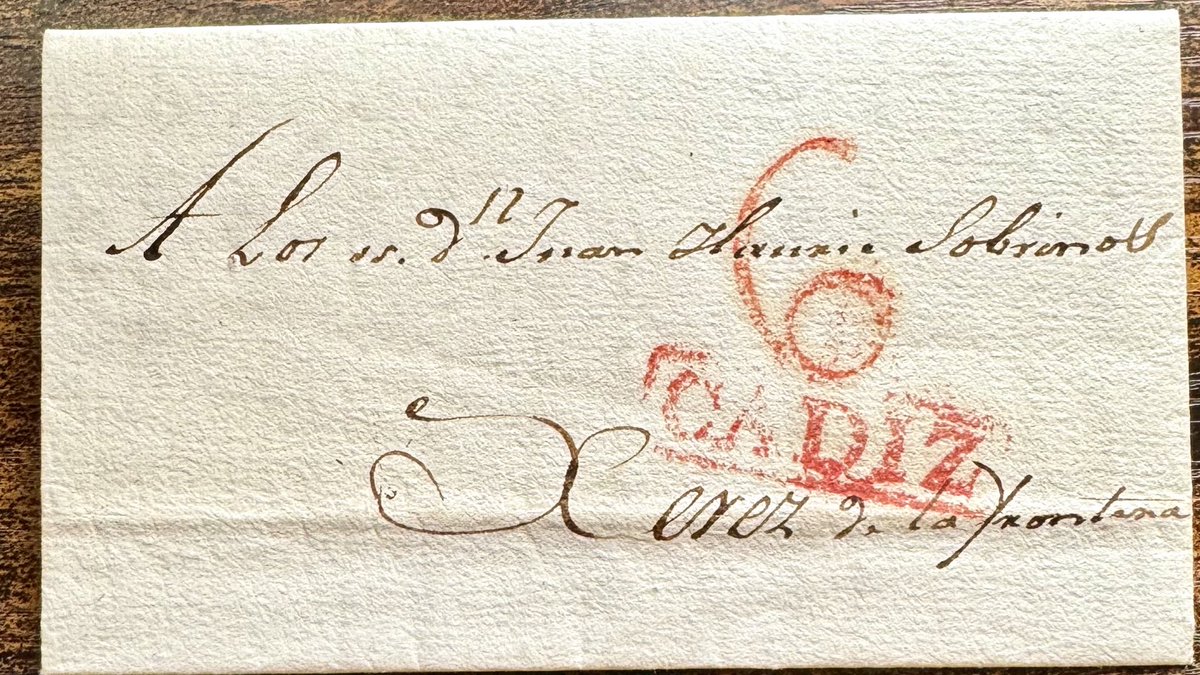 A Los ss. dⁿ. Juan Haurie Sobrinos
6
CADIZ
Xerez de la Frontera